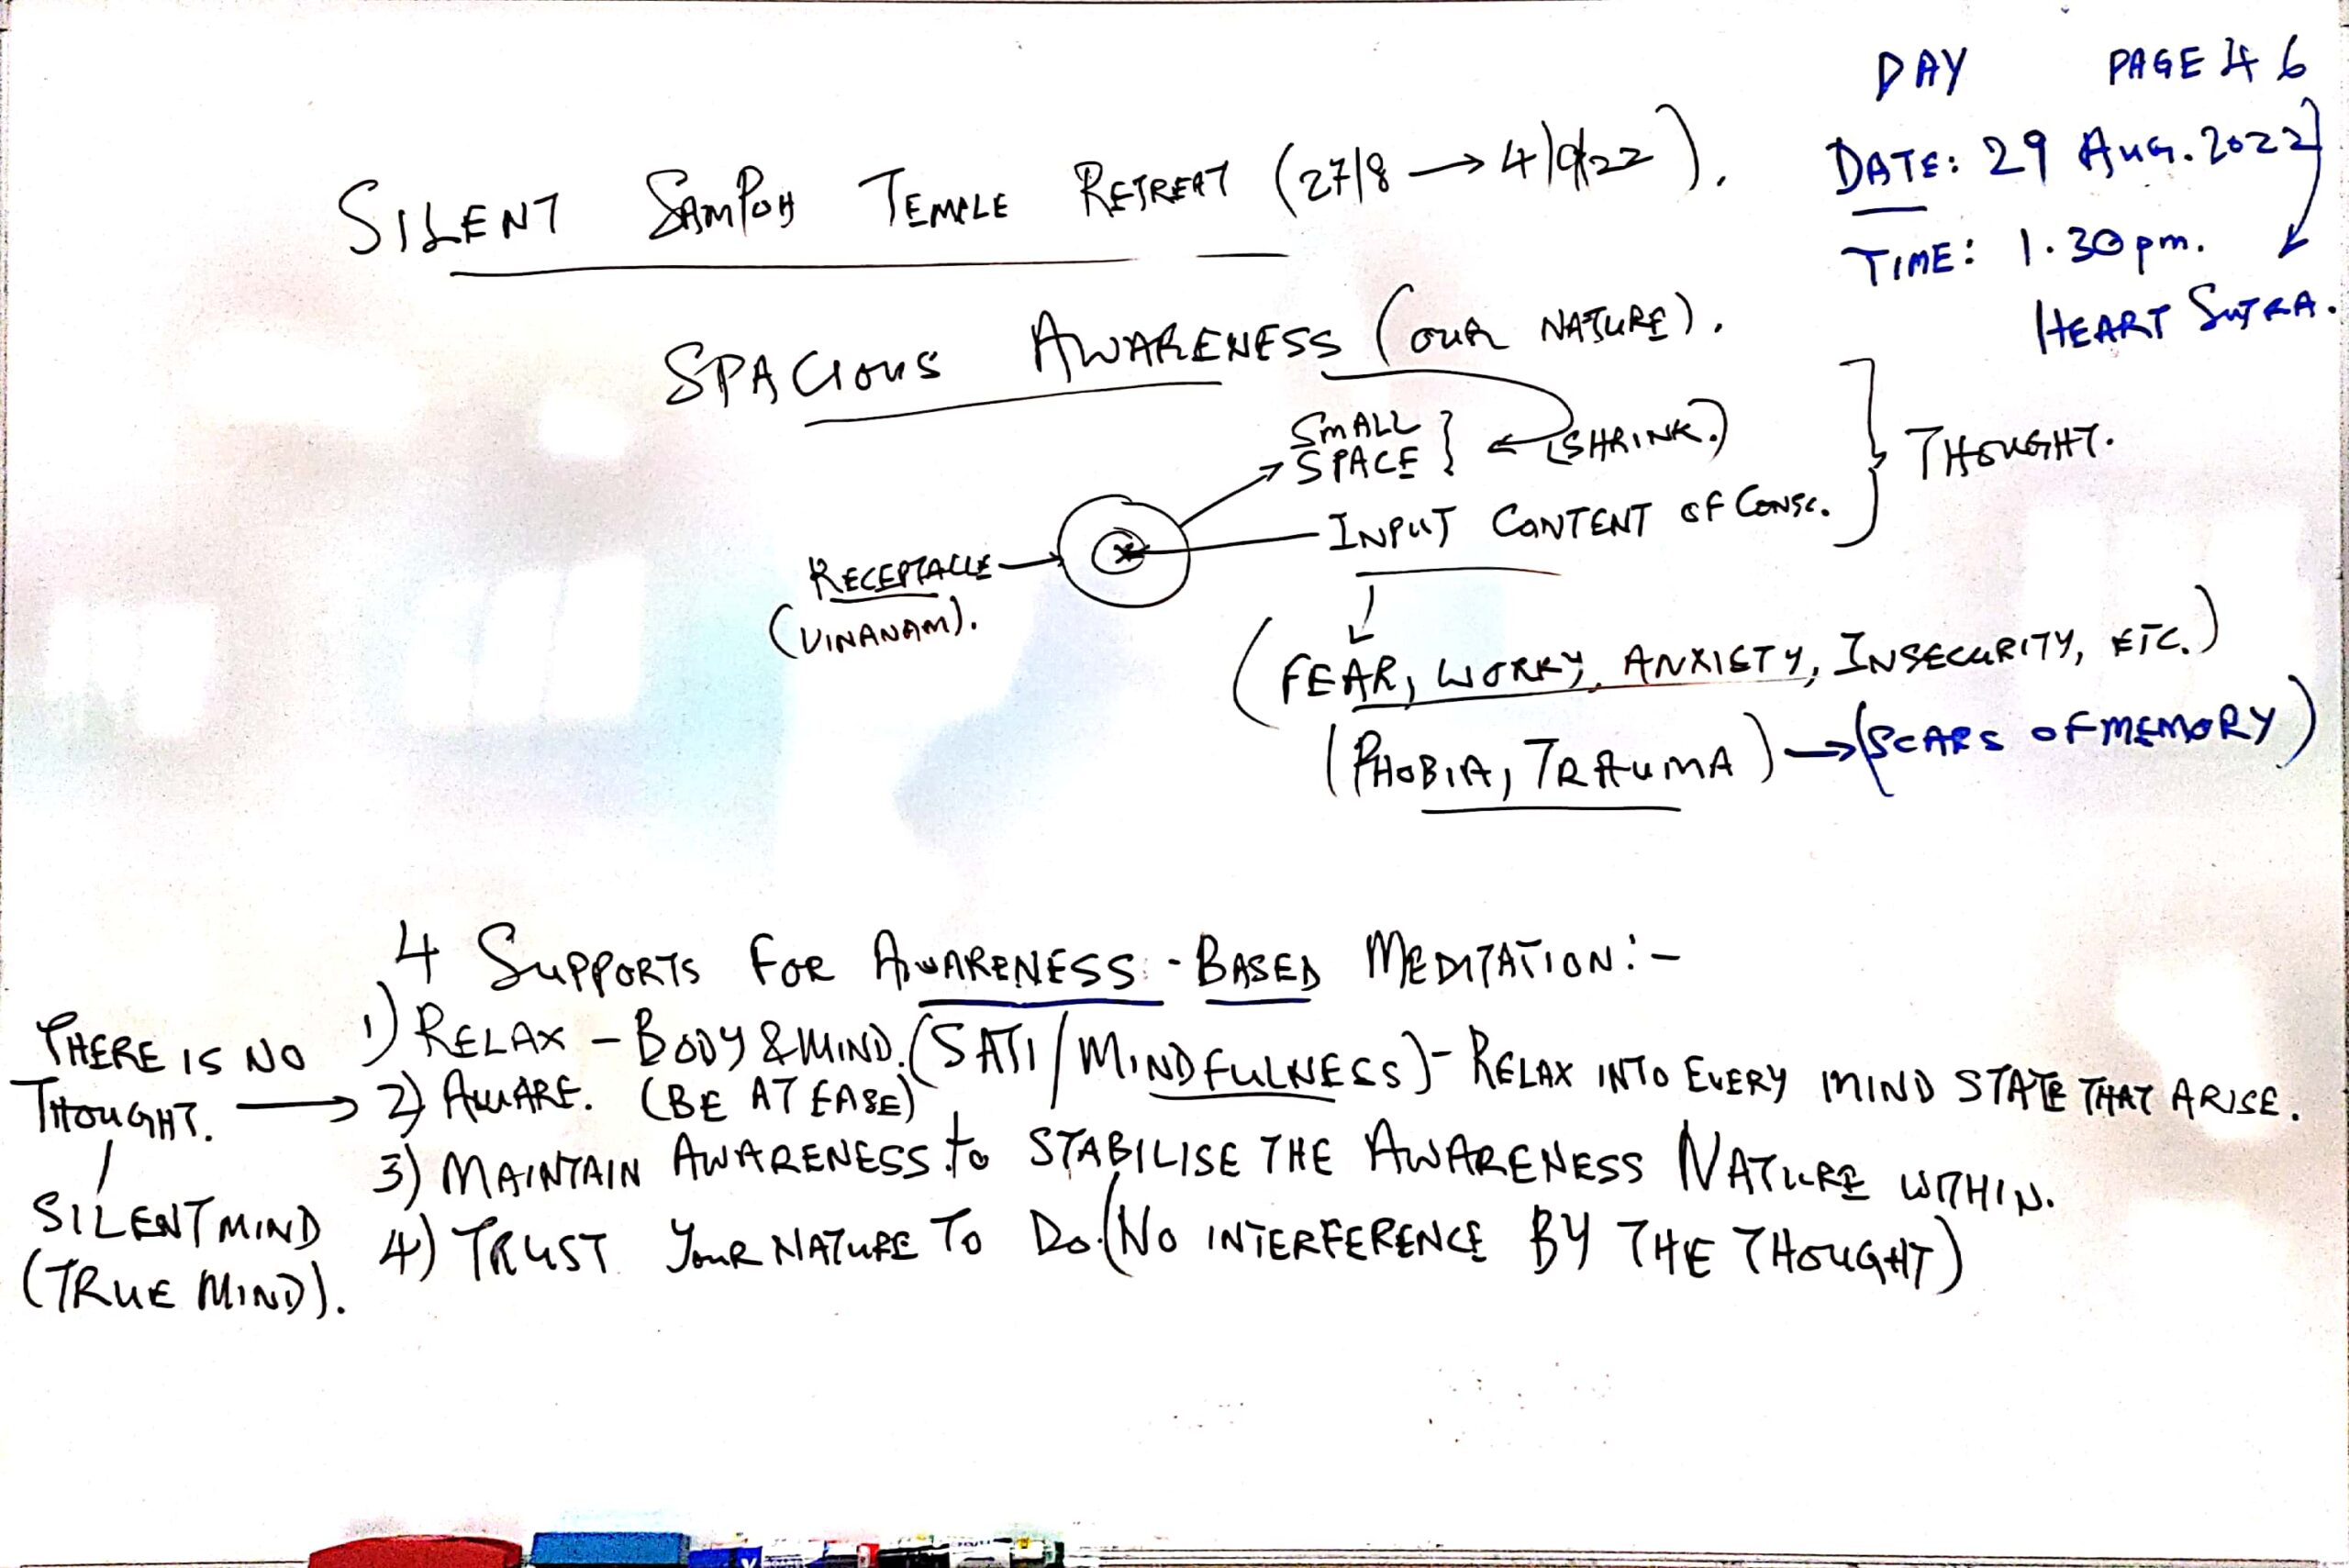 DAY PAGE 46
DATE: 29 AUG. 2022
TIME: 1.30pm.
HEART SUTRA.
SILENT SAMPOH TEMPLE RETREAT (27/8 → 4/9/22).
SPACIOUS AWARENESS (OUR NATURE).
SMALL SPACE } ← (SHRINK.)
INPUT CONTENT OF CONSC.
} THOUGHT.
RECEPTACLE
(VINANAM).
(FEAR, WORRY, ANXIETY, INSECURITY, ETC.)
(PHOBIA, TRAUMA) → (SCARS OF MEMORY)
4 SUPPORTS FOR AWARENESS-BASED MEDITATION:-
1) RELAX - BODY & MIND. (SATI/MINDFULNESS) - RELAX INTO EVERY MIND STATE THAT ARISE.
2) AWARE. (BE AT EASE)
3) MAINTAIN AWARENESS to STABILISE THE AWARENESS NATURE WITHIN.
4) TRUST YOUR NATURE TO DO. (NO INTERFERENCE BY THE THOUGHT)
THERE IS NO
THOUGHT. →
SILENT MIND
(TRUE MIND).